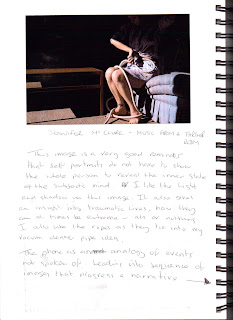 JENNIFER McCLURE - MUSIC FROM A FARTHER
ROOM
This image is a very good reminder
that self portraits do not have to show
the whole person to reveal the inner state
of the subjects mind. I like the light
and shadow in this image. It also gives
an insight into traumatic lives, how they
can at times be extreme - all or nothing
I also like the ropes as they tie into my
vacuum cleaner pipe idea.
The phone is analogy of events
not spoken of. Leading into sequence of
images that progress a narrative